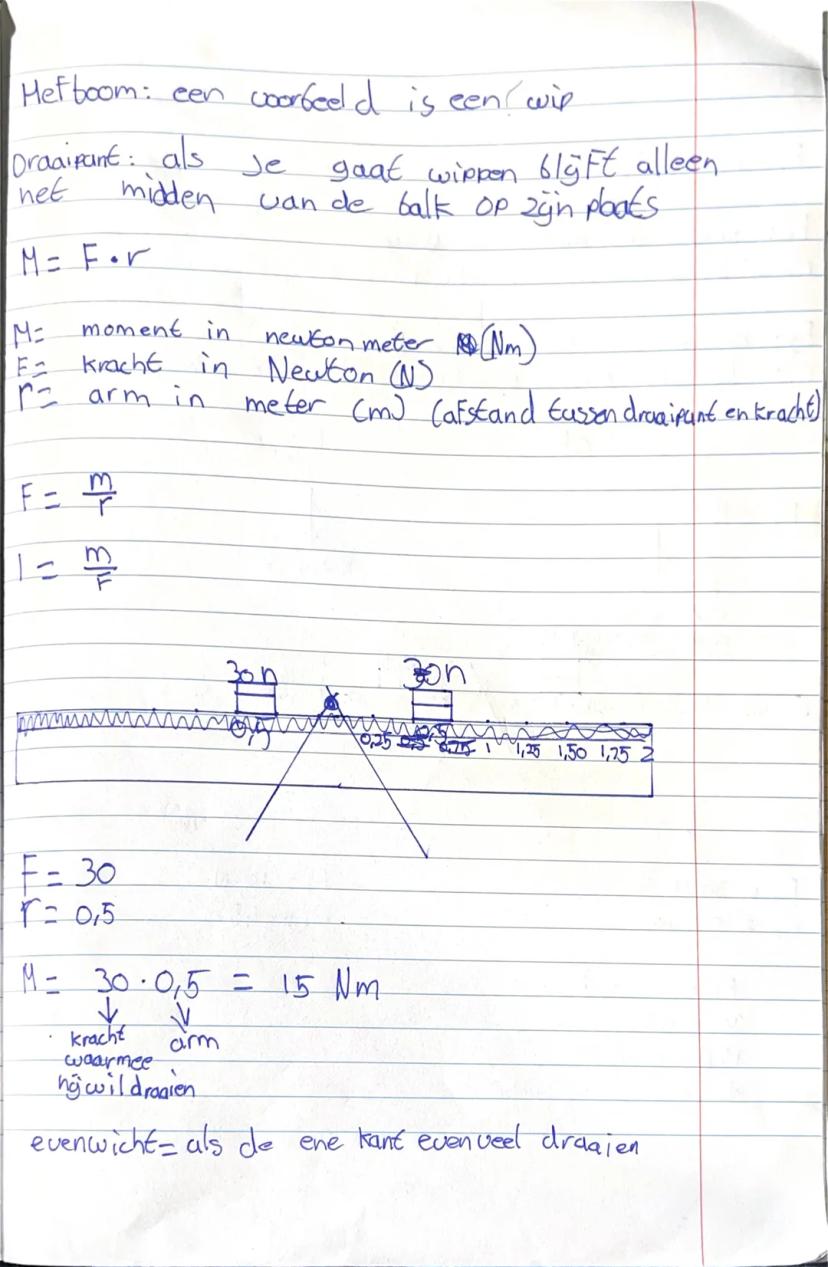 Hefboom: een voorbeeld is een wip
Draaipunt: als Je gaat wippen blijft alleen
het midden van de balk op zijn plaats
M = F · r
M= moment in newton meter (Nm)
F= kracht in Newton (N)
r= arm in meter (m) (afstand tussen draaipunt en kracht)
F = m/r
l = m/F
30n 30n
0,5 0,25 0,5 0,5 0,75 1 1,25 1,50 1,75 2
F = 30
r = 0,5
M = 30 · 0,5 = 15 Nm
kracht arm
waarmee
hij wil draaien
evenwicht = als de ene kant evenveel draaien